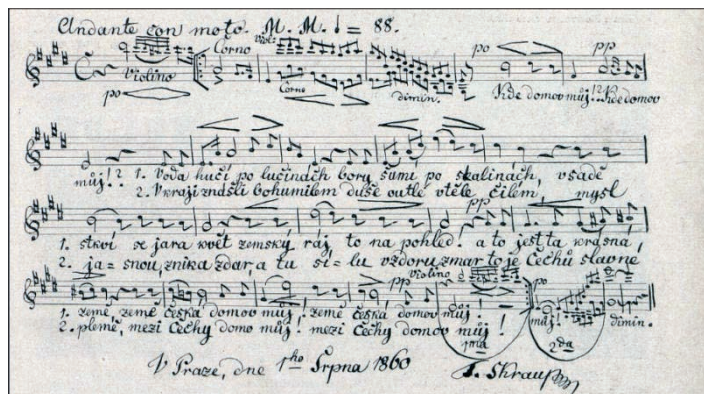 Andante con moto. M. M. ♩ = 88.
Violino Corno Viol: po pp
po Corno dimin. Kde domov můj!? Kde domov
můj!? 1. Voda hučí po lučinách bory šumí po skalinách, v sadě
2. V kraji znáš-li bohumilém duše outlé v těle čilém, mysl
pp
1. stkví se jara květ zemský ráj to na pohled! a to jest ta krásná,
2. ja=snou, znik a zdar, a tu sí=lu vzdoru zmar to je Čechů slavné,
violino pp po
1. země, země česká domov můj! země česká domov můj! můj! dimin.
2. plémě, mezi Čechy domov můj! mezi Čechy domov můj!
1ma 2da
V Praze, dne 1ho Srpna 1860 F. Škraup